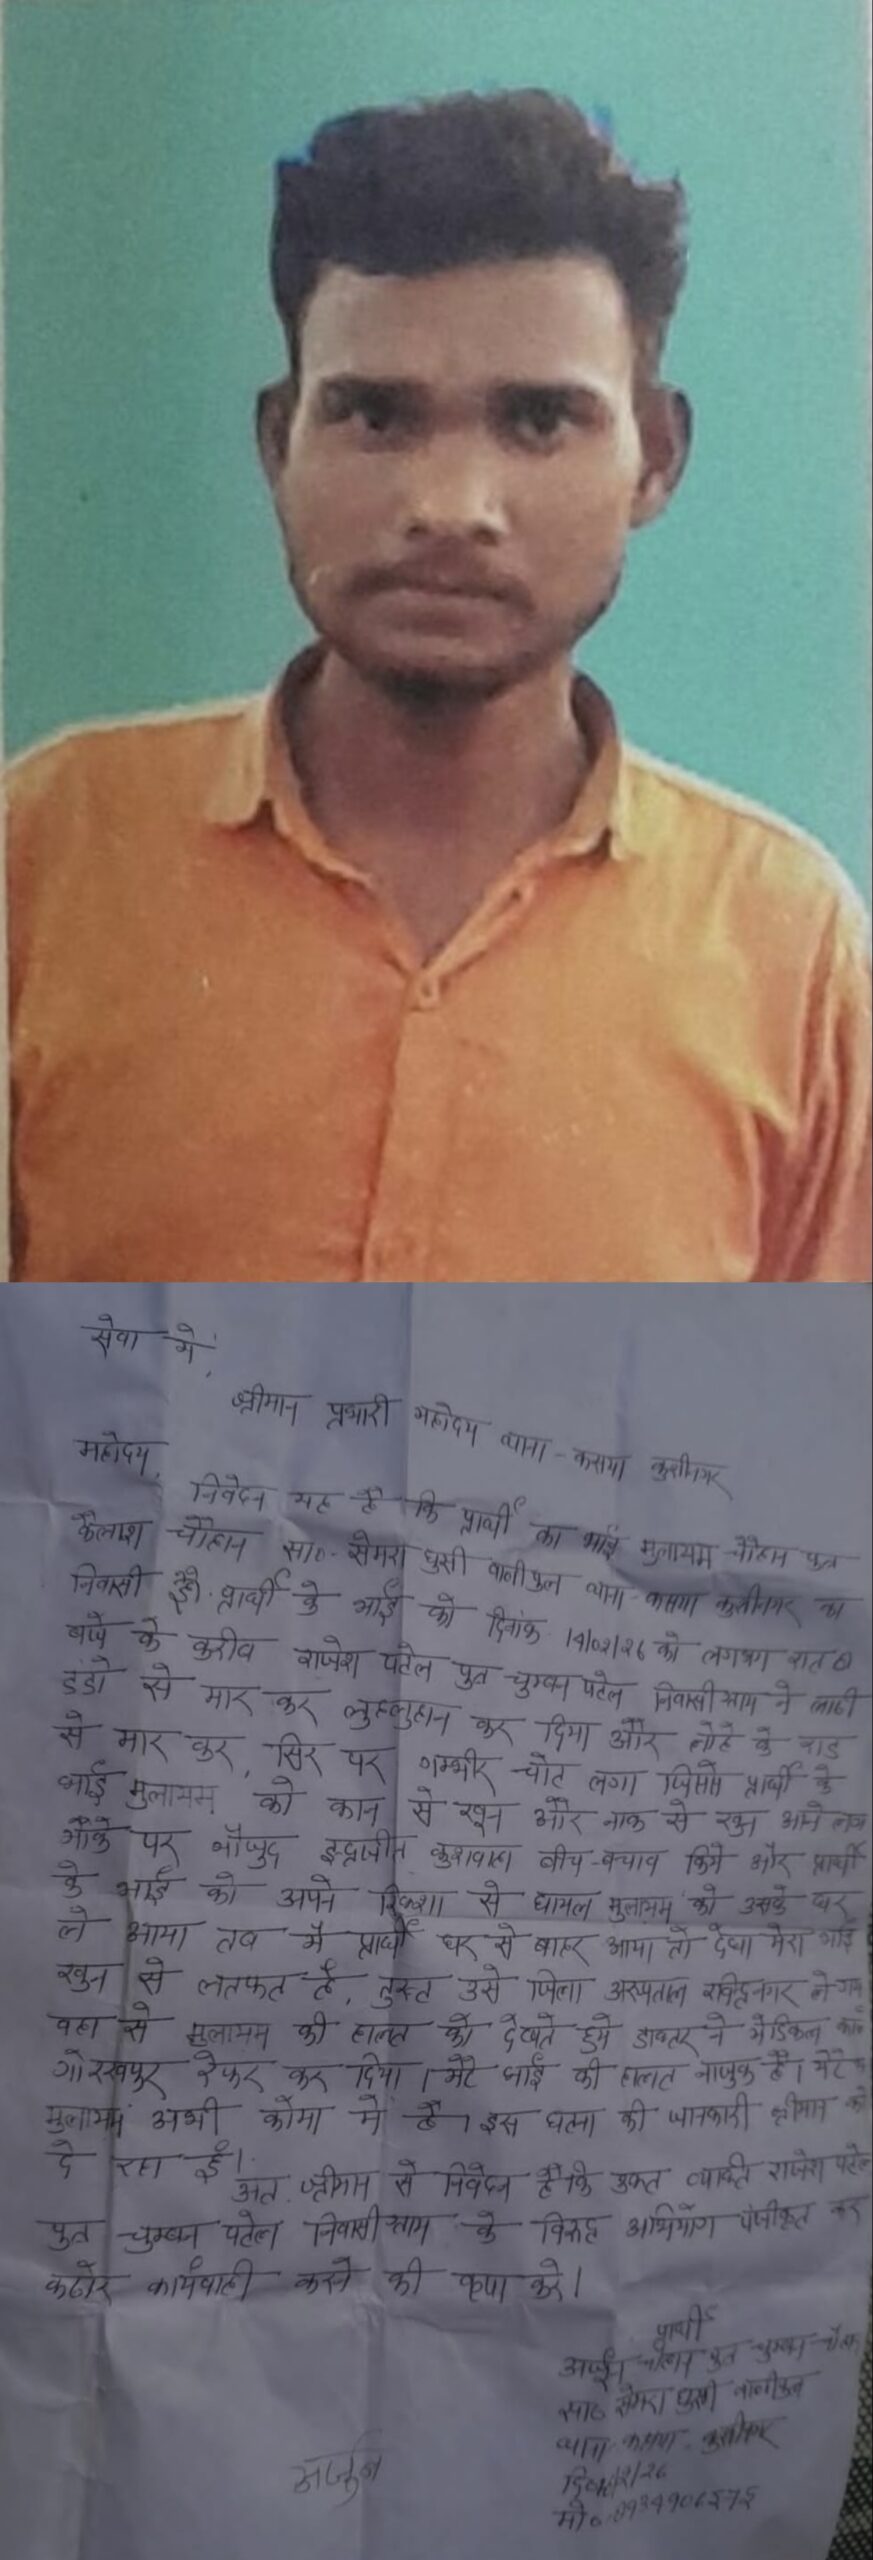 सेवा में,
श्रीमान प्रभारी महोदय थाना - कसया कुशीनगर
महोदय,
निवेदन यह है कि प्रार्थी का भाई मुलायम चौहान पुत्र
कैलाश चौहान सा०- सेमरा घुसी थाना-कसया कुशीनगर का
निवासी है। प्रार्थी के भाई को दिनांक को लगभग रात
बजे के करीब राजेश पटेल पुत्र चुम्बन पटेल निवासी ग्राम ने लाठी
डंडो से मार कर लुहलुहान कर दिया और लोहे के राड
से मार कर, सिर पर गम्भीर चोट लगा जिससे प्रार्थी के
भाई मुलायम को कान से खून और नाक से खुन आने लगा
मौके पर मौजुद इन्द्रजीत कुशवाहा बीच-बचाव किये और प्रार्थी
के भाई को अपने रिक्शा से घायल मुलायम को उसके घर
ले आया तब मै प्रार्थी घर से बाहर आया तो देखा मेरा भाई
खुन से लतफत है, तुरन्त उसे जिला अस्पताल रविन्द्रनगर ले गया
वहा से मुलायम की हालत को देखते हुये डाक्टर ने मेडिकल
गोरखपुर रेफर कर दिया। मेरे भाई की हालत नाजुक है। मेरे
मुलायम अभी कोमा में है। इस घटना की जानकारी श्रीमान को
दे रहा हूँ।
अतः श्रीमान से निवेदन है कि उक्त व्यक्ति राजेश पटेल
पुत्र चुम्बन पटेल निवासी ग्राम के विरुद्ध अभियोग पंजीकृत कर
कठोर कार्यवाही करने की कृपा करे।
प्रार्थी
अर्जुन चौहान पुत्र
सा० सेमरा घुसी
थाना-कसया-कुशीनगर
अर्जुन
मो०